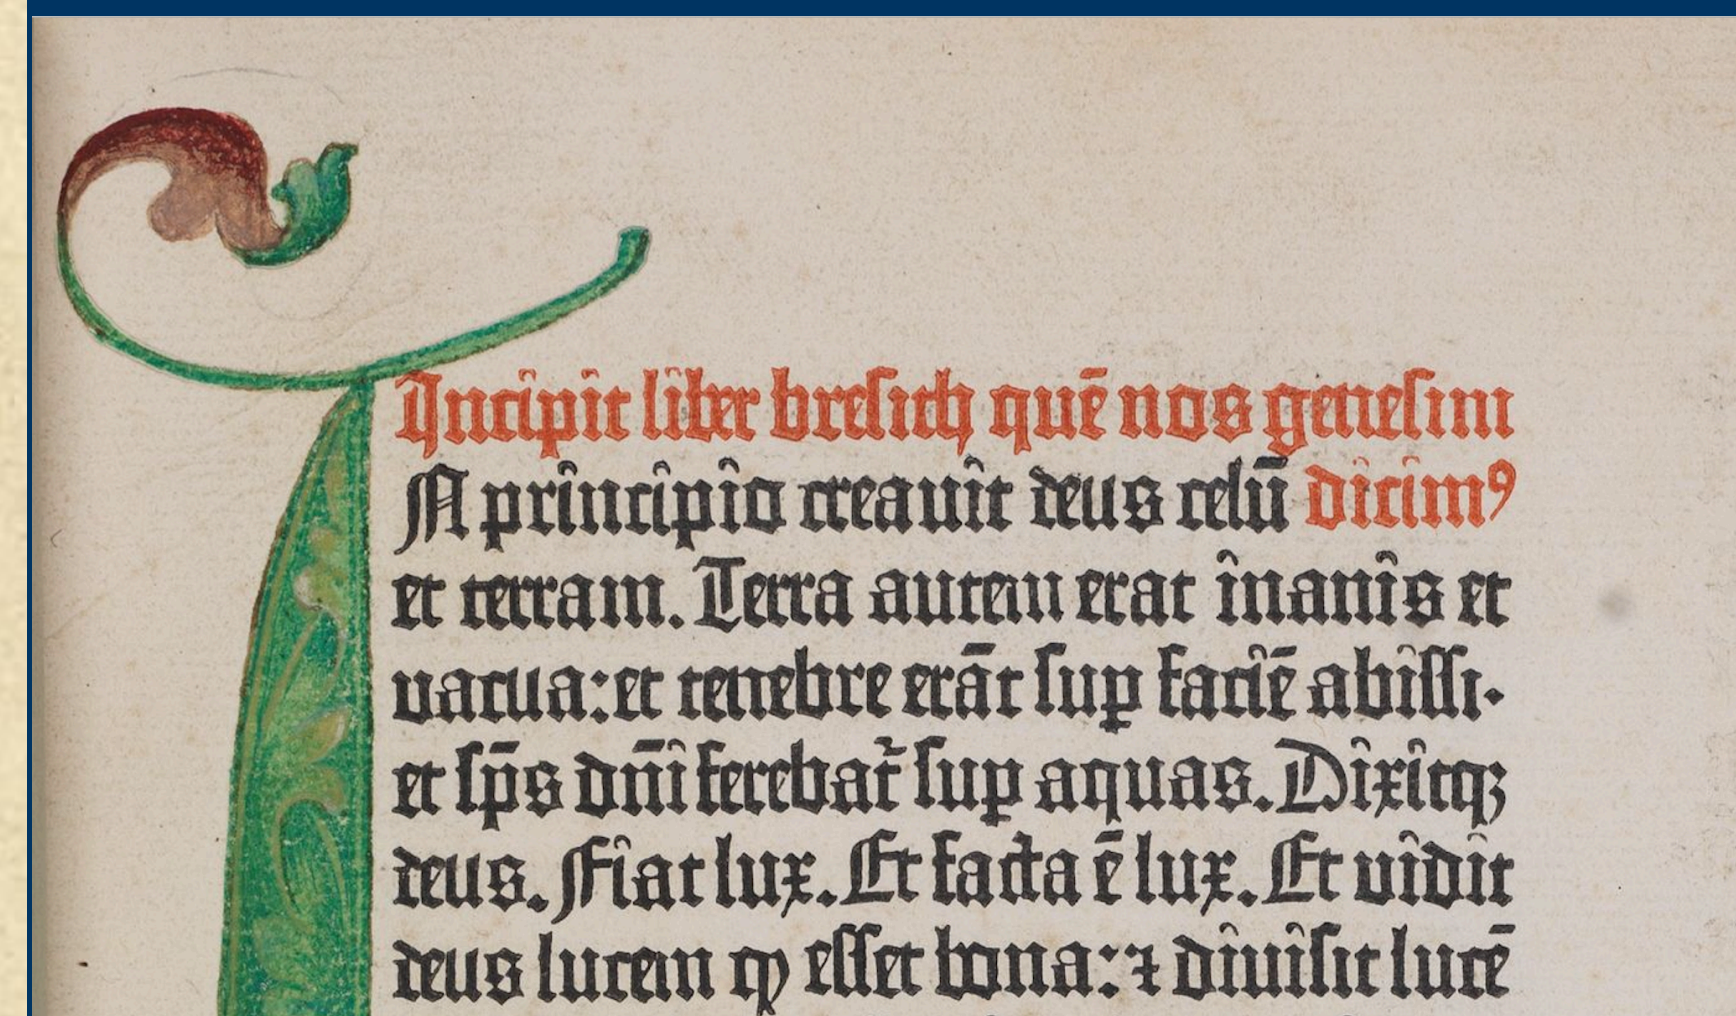 Incipit liber bresith quē nos genesim
N principio creauit deus celū dicimꝰ
et terram. Terra autem erat inanis et
vacua: et tenebre erāt suꝑ faciē abissi.
et sp̄s dn̄i ferebat᷑ suꝑ aquas. Dixitqꝫ
deus. Fiat lux. Et facta ē lux. Et vidit
deus lucem ꝙ esset bona: ⁊ diuisit lucē